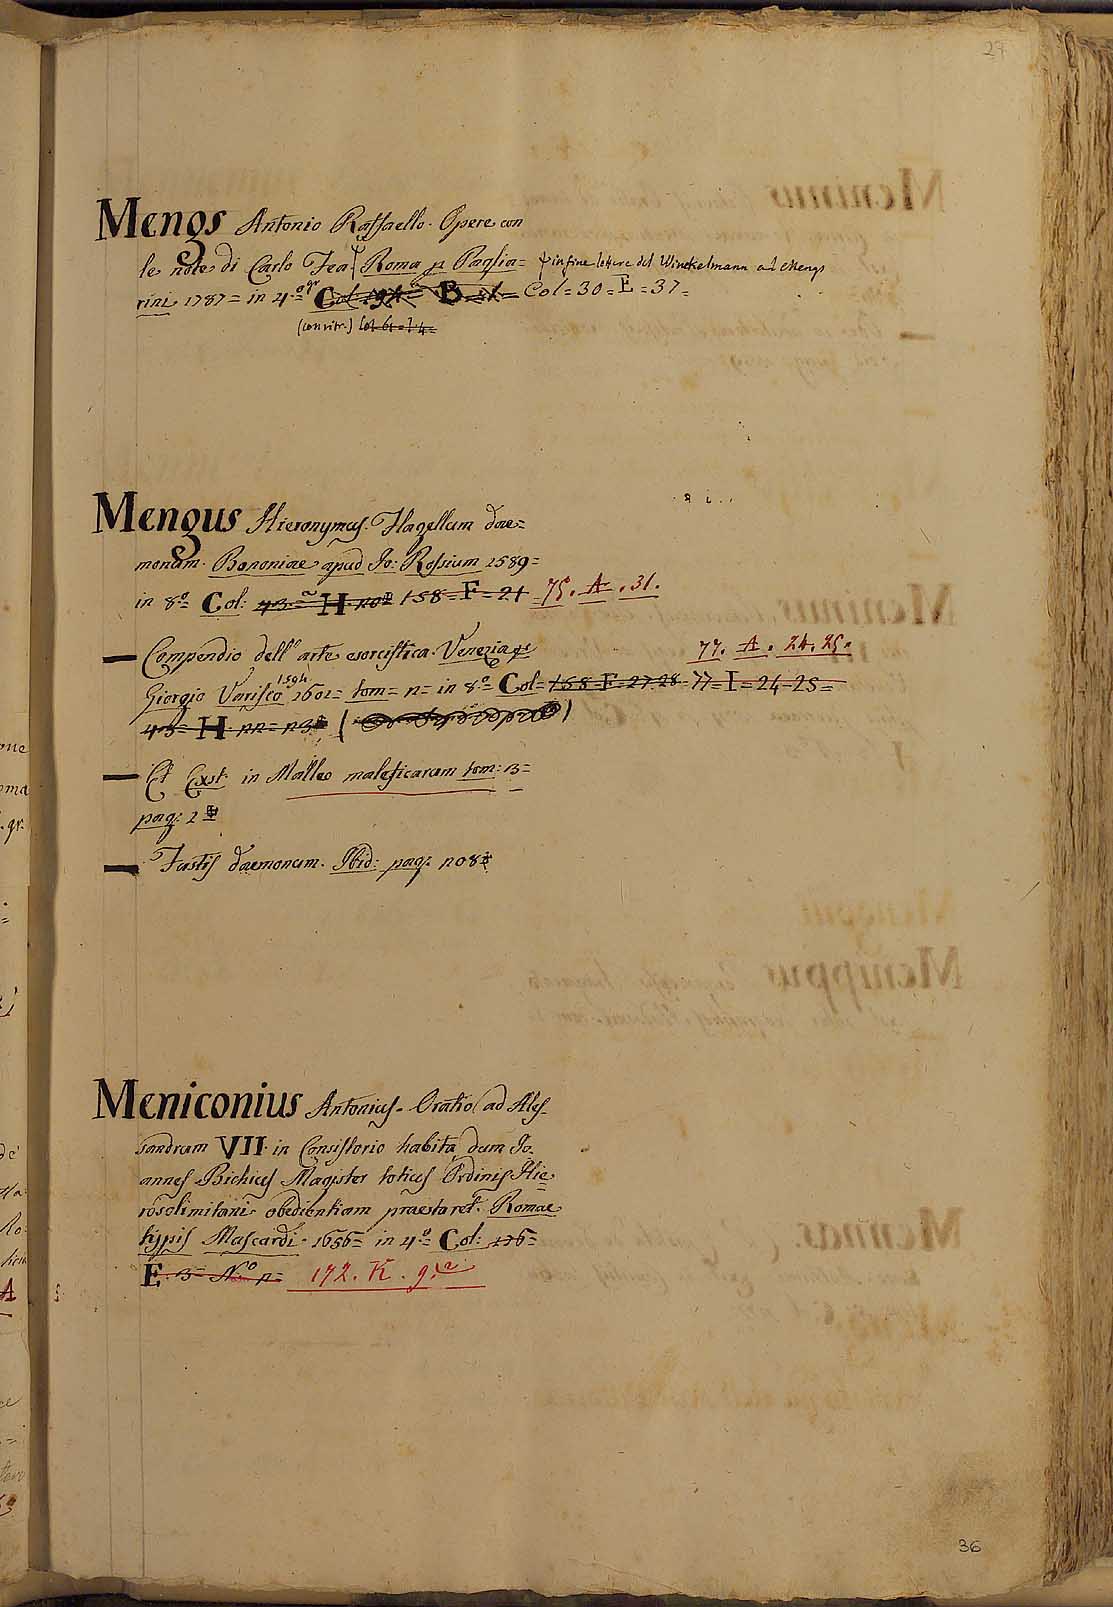 27
Mengs Antonio Raffaello. Opere con
le note di Carlo Fea. Roma p Paglia=
in fine lettere del Winckelmann al Mengs
rini 1787= in 4.º gr Col= 30= E =37=
(con ritr.)
Mengus Hieronymus. Flagellum dae=
monum. Bononiae apud Jo: Rossium 1589=
in 8º Col: 43.= H. 158= F= 21 75. A. 31.
— Compendio dell' arte esorcistica. Venezia pr 77. A. 24. 25.
Giorgio Varisco 1601= tom= in 8º Col= 158 F= 27 28= 77= I= 24-25=
43= H.
— Et Exst. in Malleo maleficarum tom: 3=
pag: 2
— Fustis daemonum. Ibid: pag: 108
Meniconius Antonius. Oratio ad Ales=
sandrum VII. in Consistorio habita, dum Jo=
annes Bichius Magister totius Ordinis Hie=
rosolimitani obedientiam praestaret. Romae
typis Mascardi. 1656= in 4º Col: 176=
E. 3= Nº 172. K. 9.
36